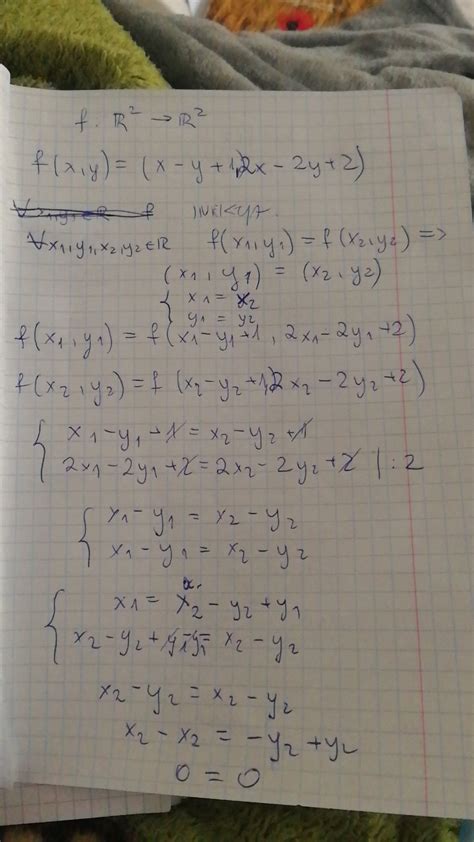 f: ℝ² → ℝ²
f(x,y) = (x - y + 1, 2x - 2y + 2)
∀x₁,y₁∈ℝ f
∀x₁,y₁,x₂,y₂∈ℝ f(x₁,y₁) = f(x₂,y₂) =>
(x₁, y₁) = (x₂, y₂)
{ x₁ = x₂
y₁ = y₂
f(x₁, y₁) = f(x₁-y₁+1, 2x₁-2y₁+2)
f(x₂, y₂) = f(x₂-y₂+1, 2x₂-2y₂+2)
{ x₁-y₁+1 = x₂-y₂+1
2x₁-2y₁+2 = 2x₂-2y₂+2 | : 2
{ x₁-y₁ = x₂-y₂
x₁-y₁ = x₂-y₂
{ x₁ = x₂-y₂+y₁
x₂-y₂+y₁-y₁ = x₂-y₂
x₂-y₂ = x₂-y₂
x₂-x₂ = -y₂+y₂
0 = 0